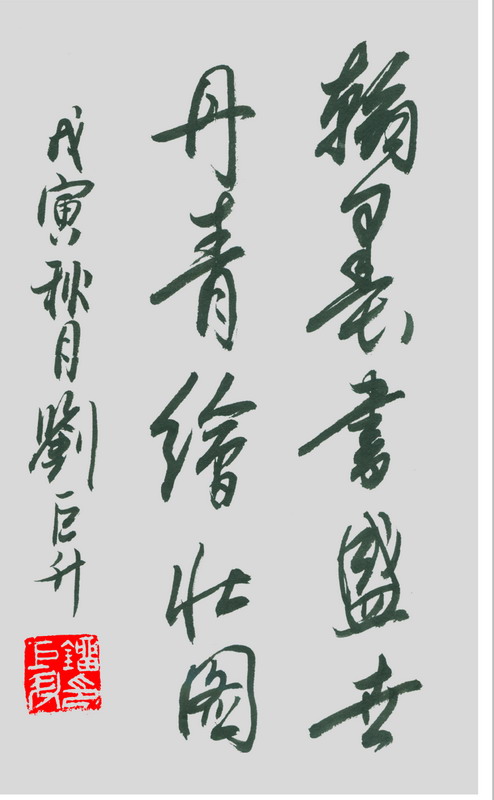 翰墨書盛世
丹青繪壯图
戊寅秋月劉巨升